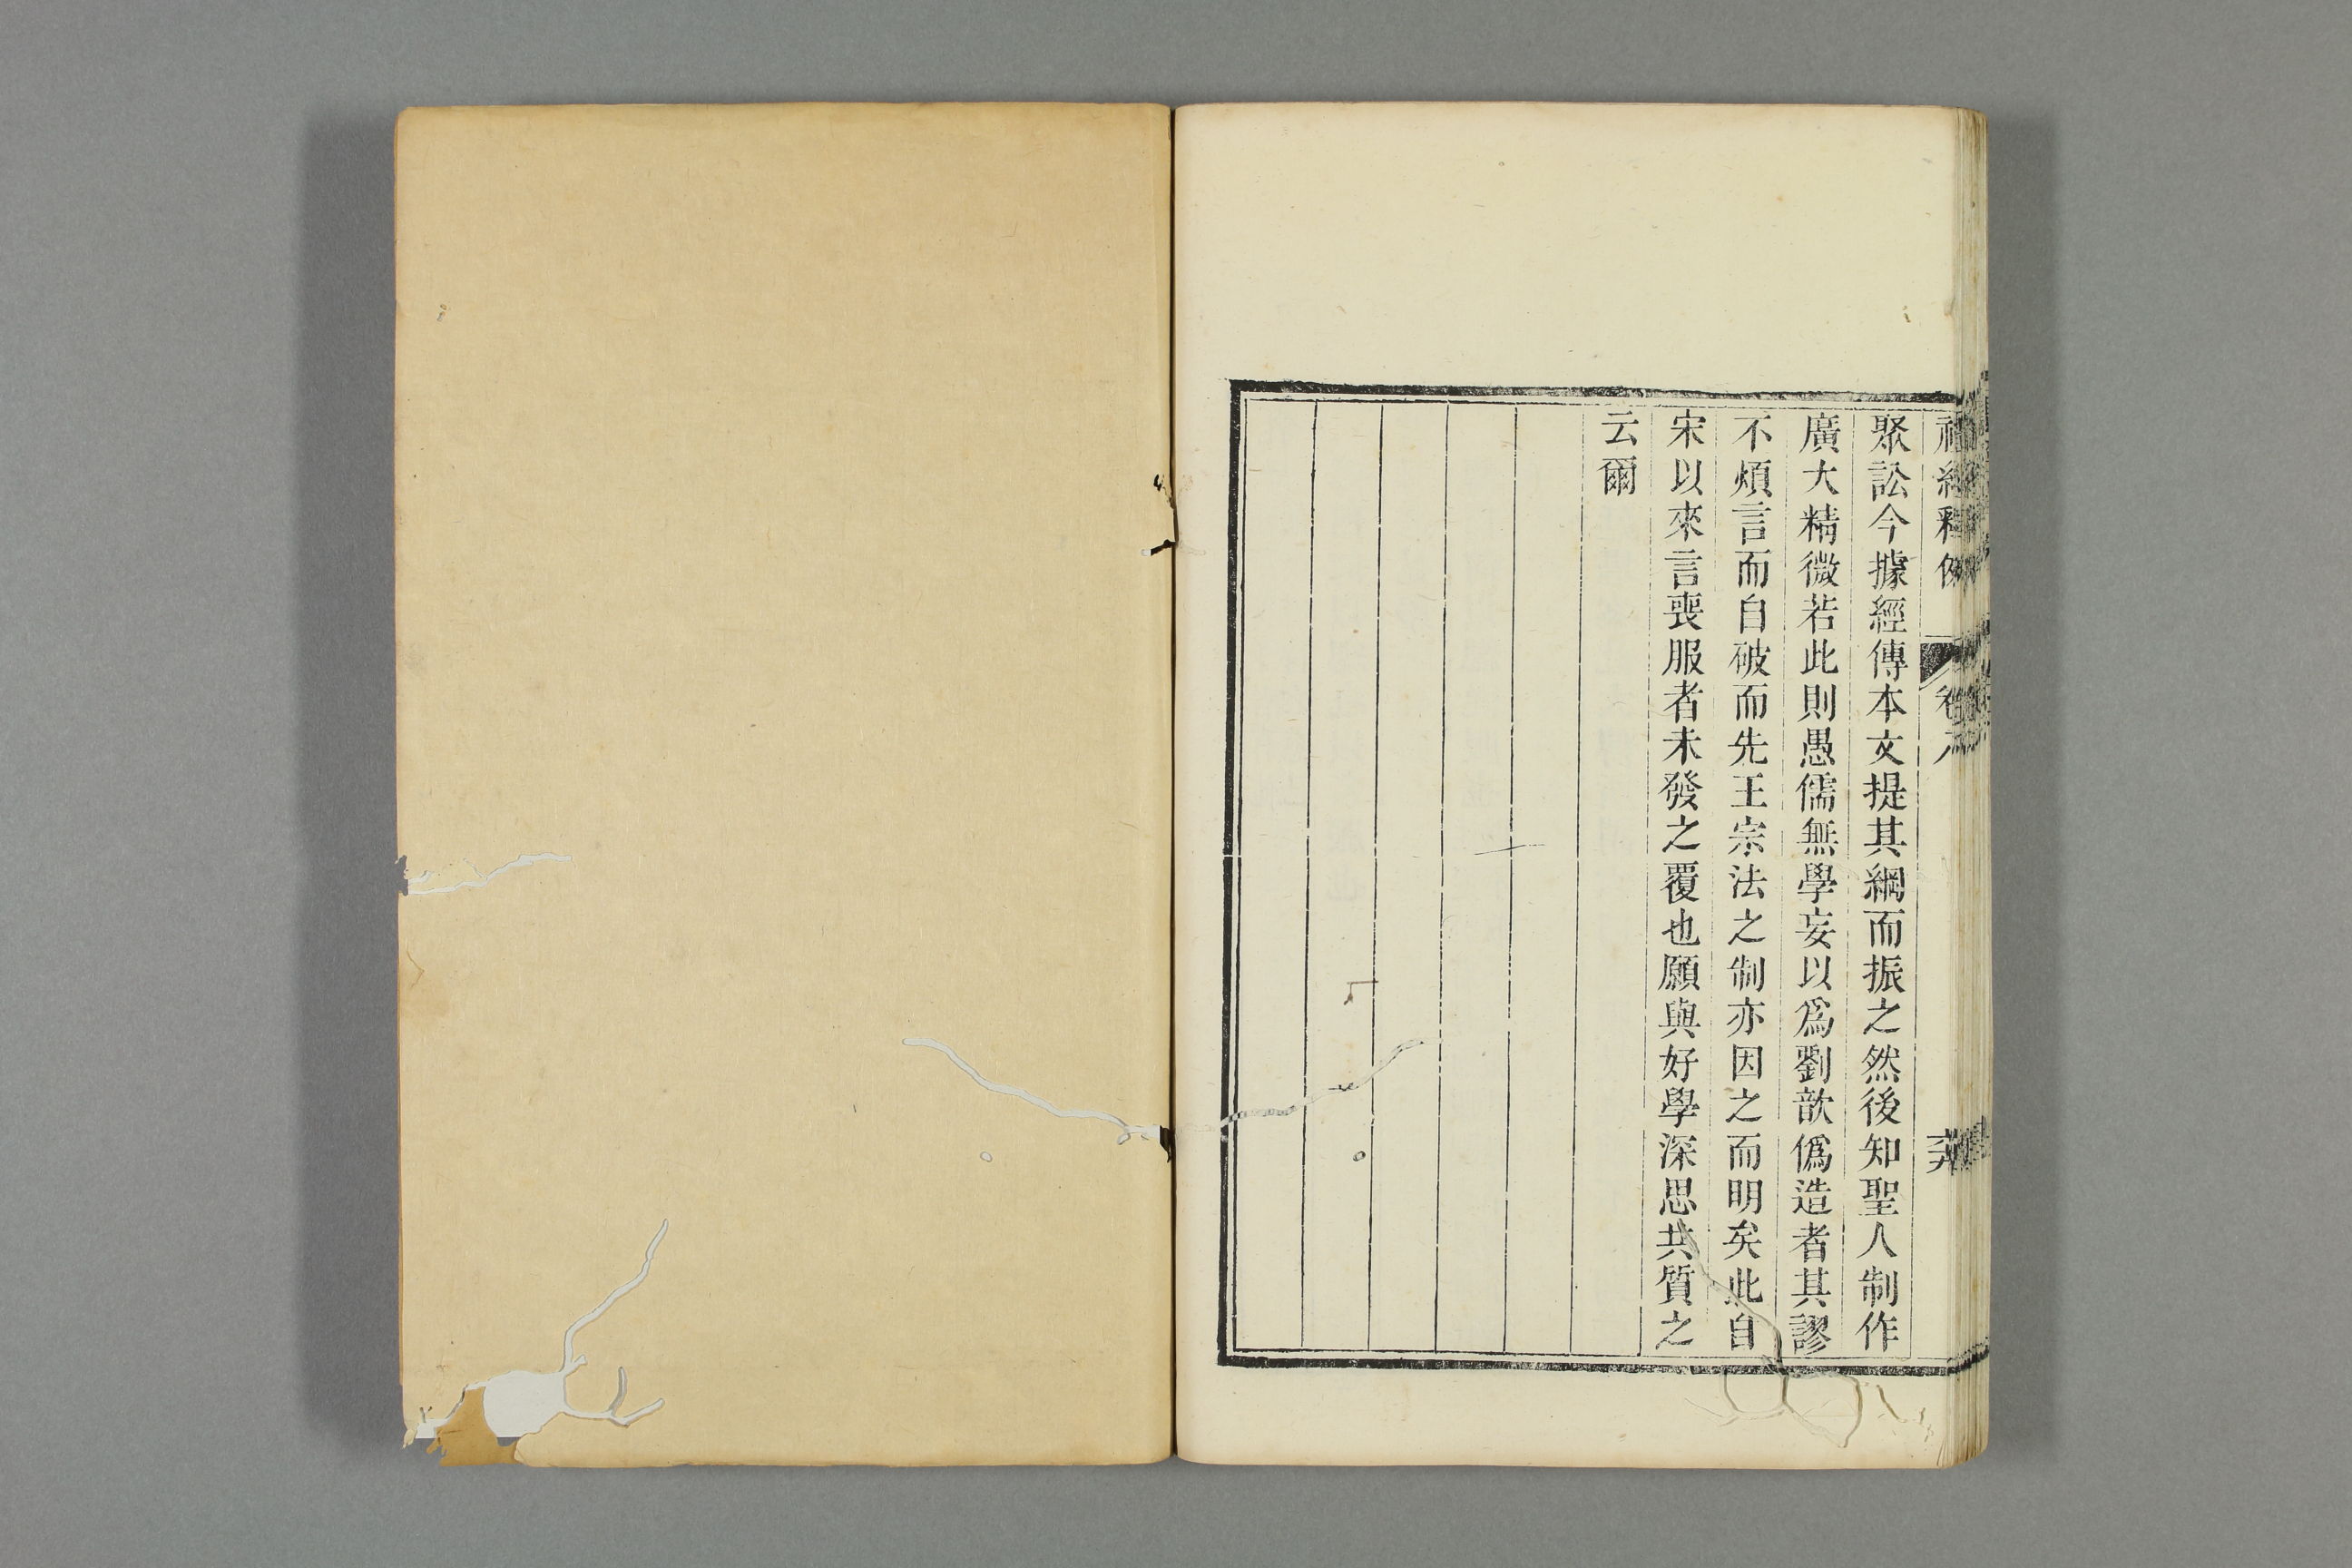 聚訟今據經傳本文提其綱而振之然後知聖人制作
廣大精微若此則愚儒無學妄以爲劉歆僞造者其謬
不煩言而自破而先王宗法之制亦因之而明矣此自
宋以來言喪服者未發之覆也願與好學深思共質之
云爾